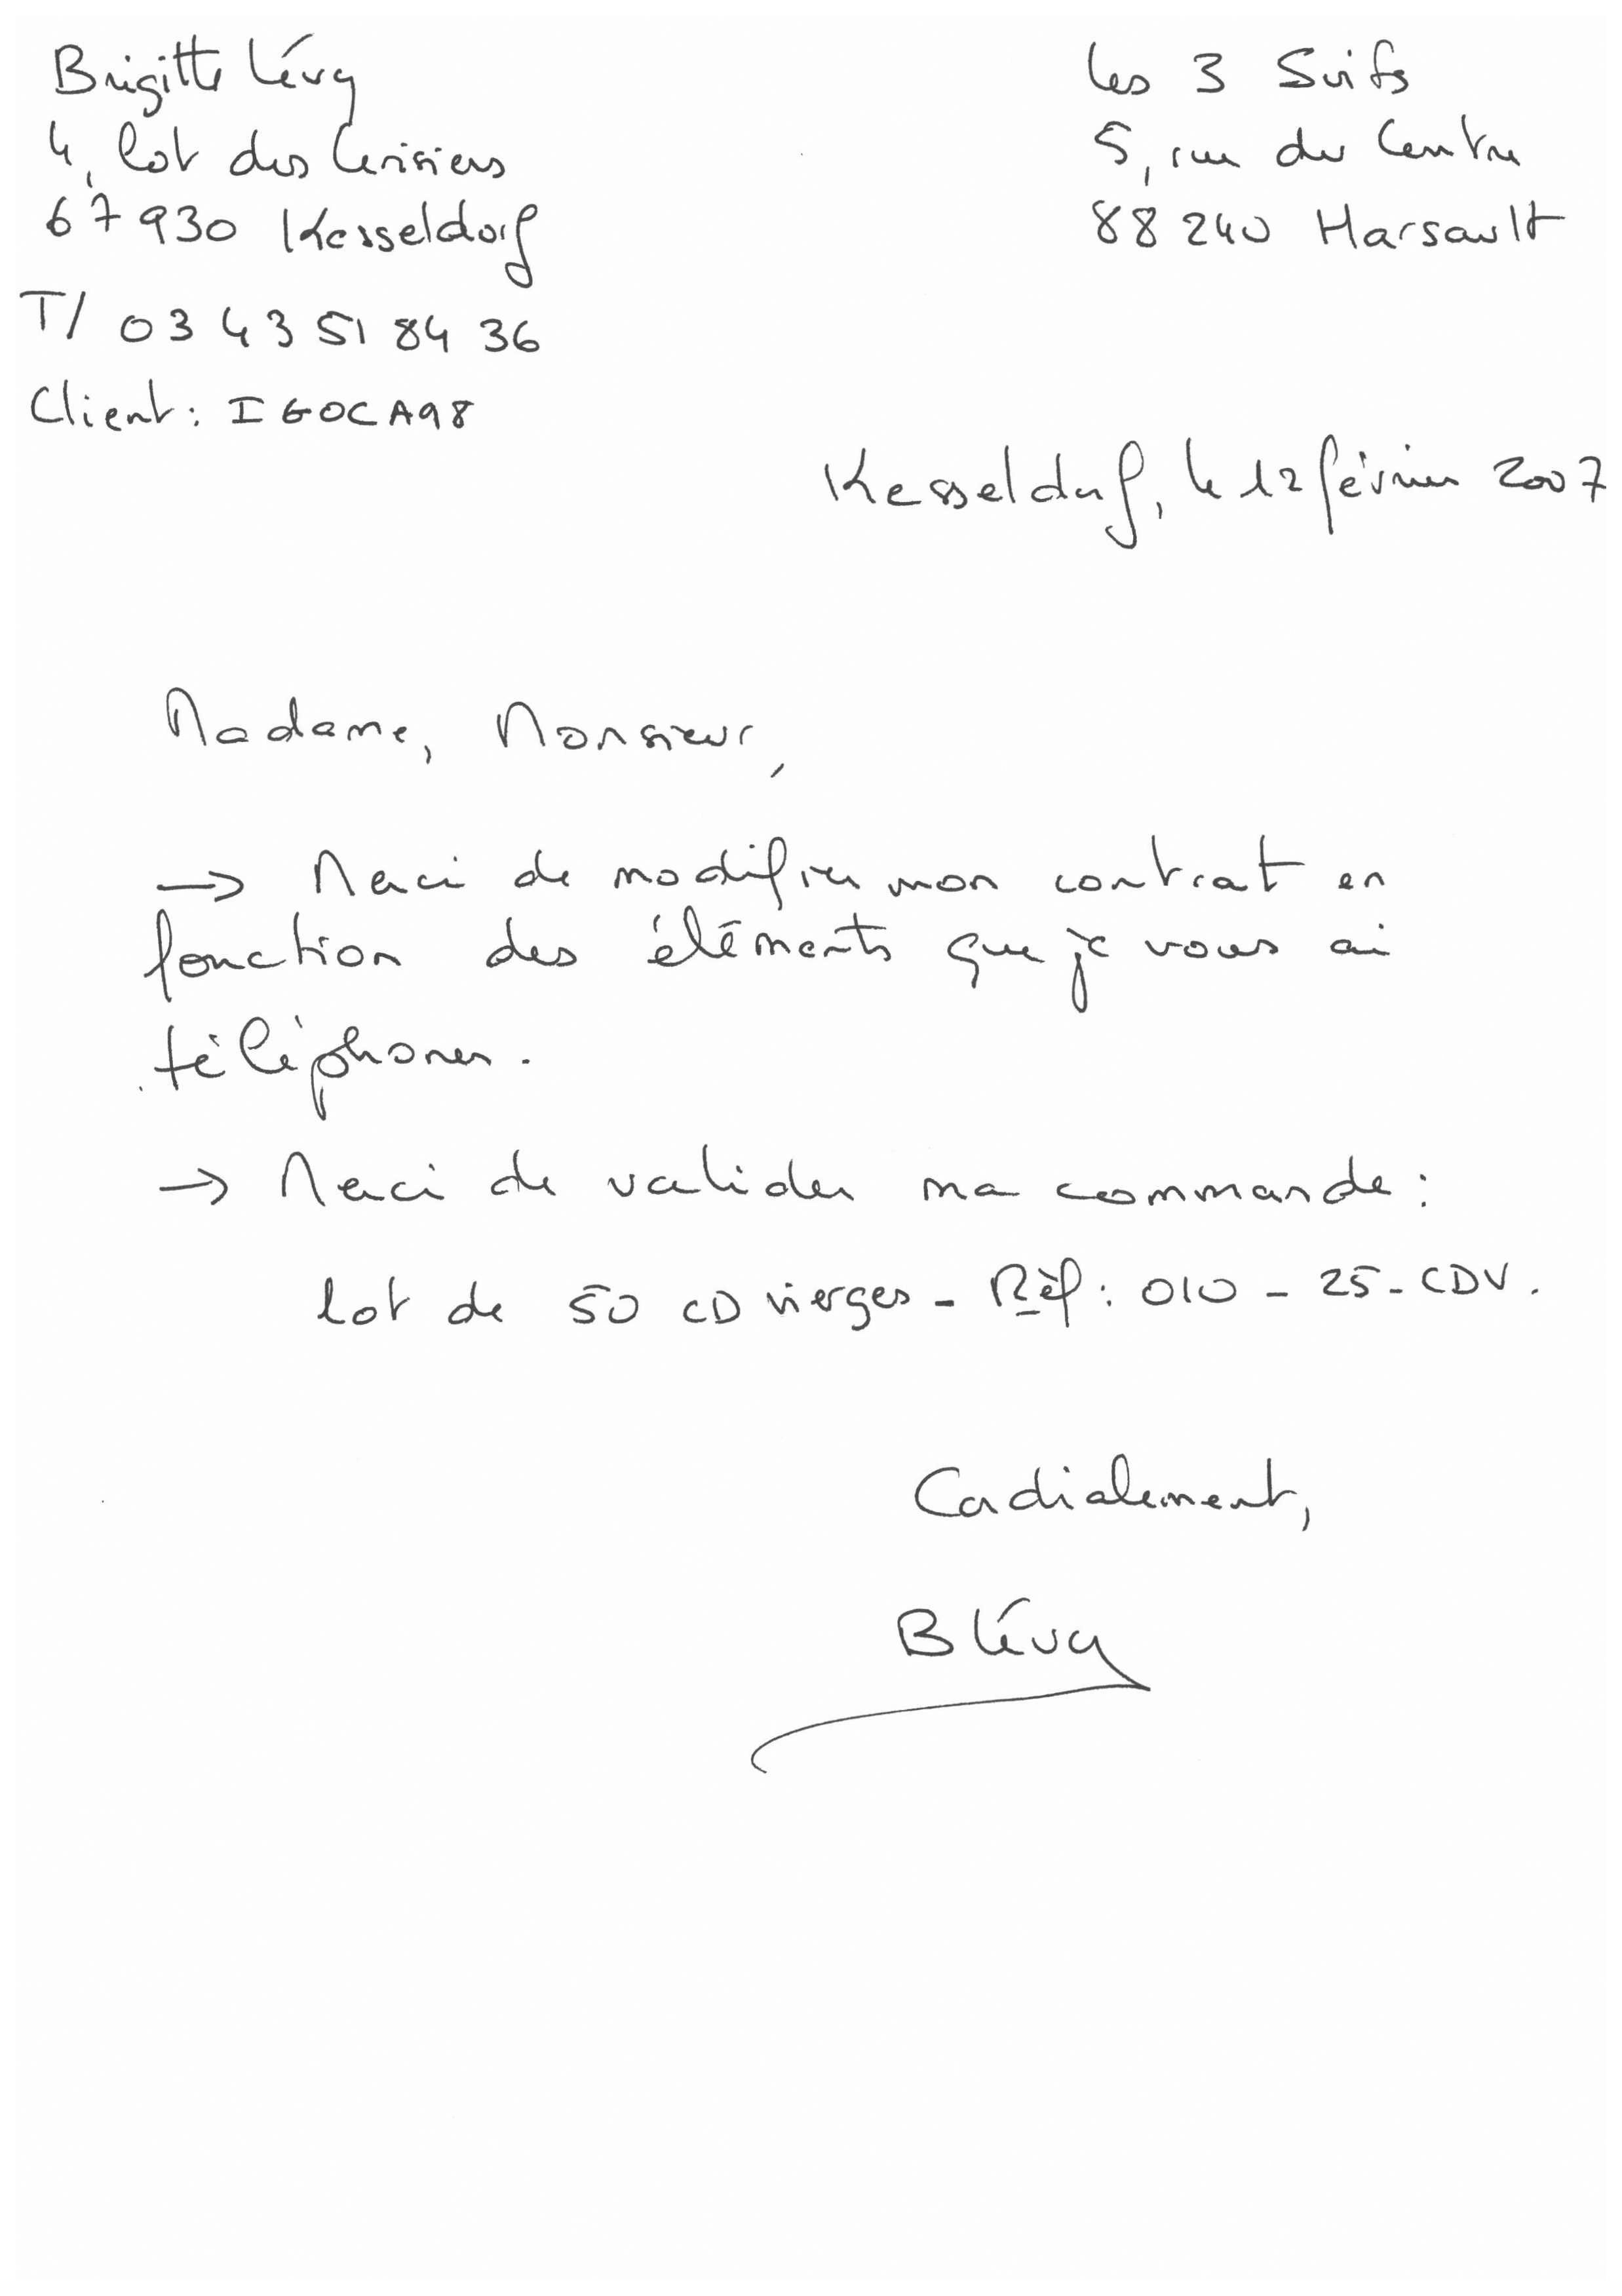 Brigitte Lévy
4, lot des Cerisiers
67930 Kesseldorf
T/ 03 43 51 84 36
Client : IGOCA98
Les 3 Suifs
5, rue du Centre
88240 Harsault
Kesseldorf, le 12 février 2007
Madame, Monsieur,
→ Merci de modifier mon contrat en
fonction des éléments que je vous ai
téléphoner.
→ Merci de valider ma commande :
lot de 50 CD vierges - Réf : 010 - 25 - CDV.
Cordialement,
B Lévy